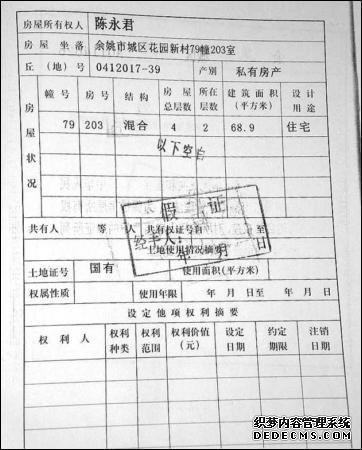 房屋所有权人 陈永君
房屋坐落 余姚市城区花园新村79幢203室
丘(地)号 0412017-39 产别 私有房产
房屋状况 幢号 房号 结构 房屋总层数 所在层数 建筑面积(平方米) 设计用途
79 203 混合 4 2 68.9 住宅
以下空白
假证
共有人 等 人 共有权证号自 至
经手人: 年 月 日
土地使用情况摘要
土地证号 国有 使用面积(平方米)
权属性质 使用年限 年 月 日至 年 月 日
设定他项权利摘要
权利人 权利种类 权利范围 权利价值(元) 设定日期 约定期限 注销日期
织梦内容管理系统
DEDECMS.COM